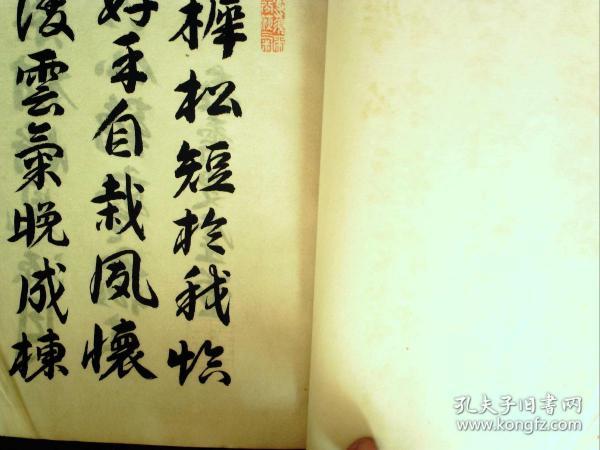 穉松短於我恰
好手自栽夙懷
凌雲氣晚成棟
孔夫子旧书网
www.kongfz.com